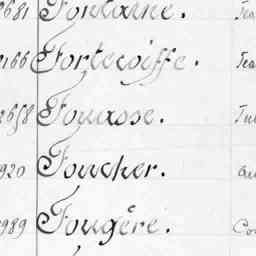 2681 Fontaine. Jea
2166 Fortecoiffe. Jea
2658 Fouasse. Jul
920 Foucher.
989 Fougère. Co